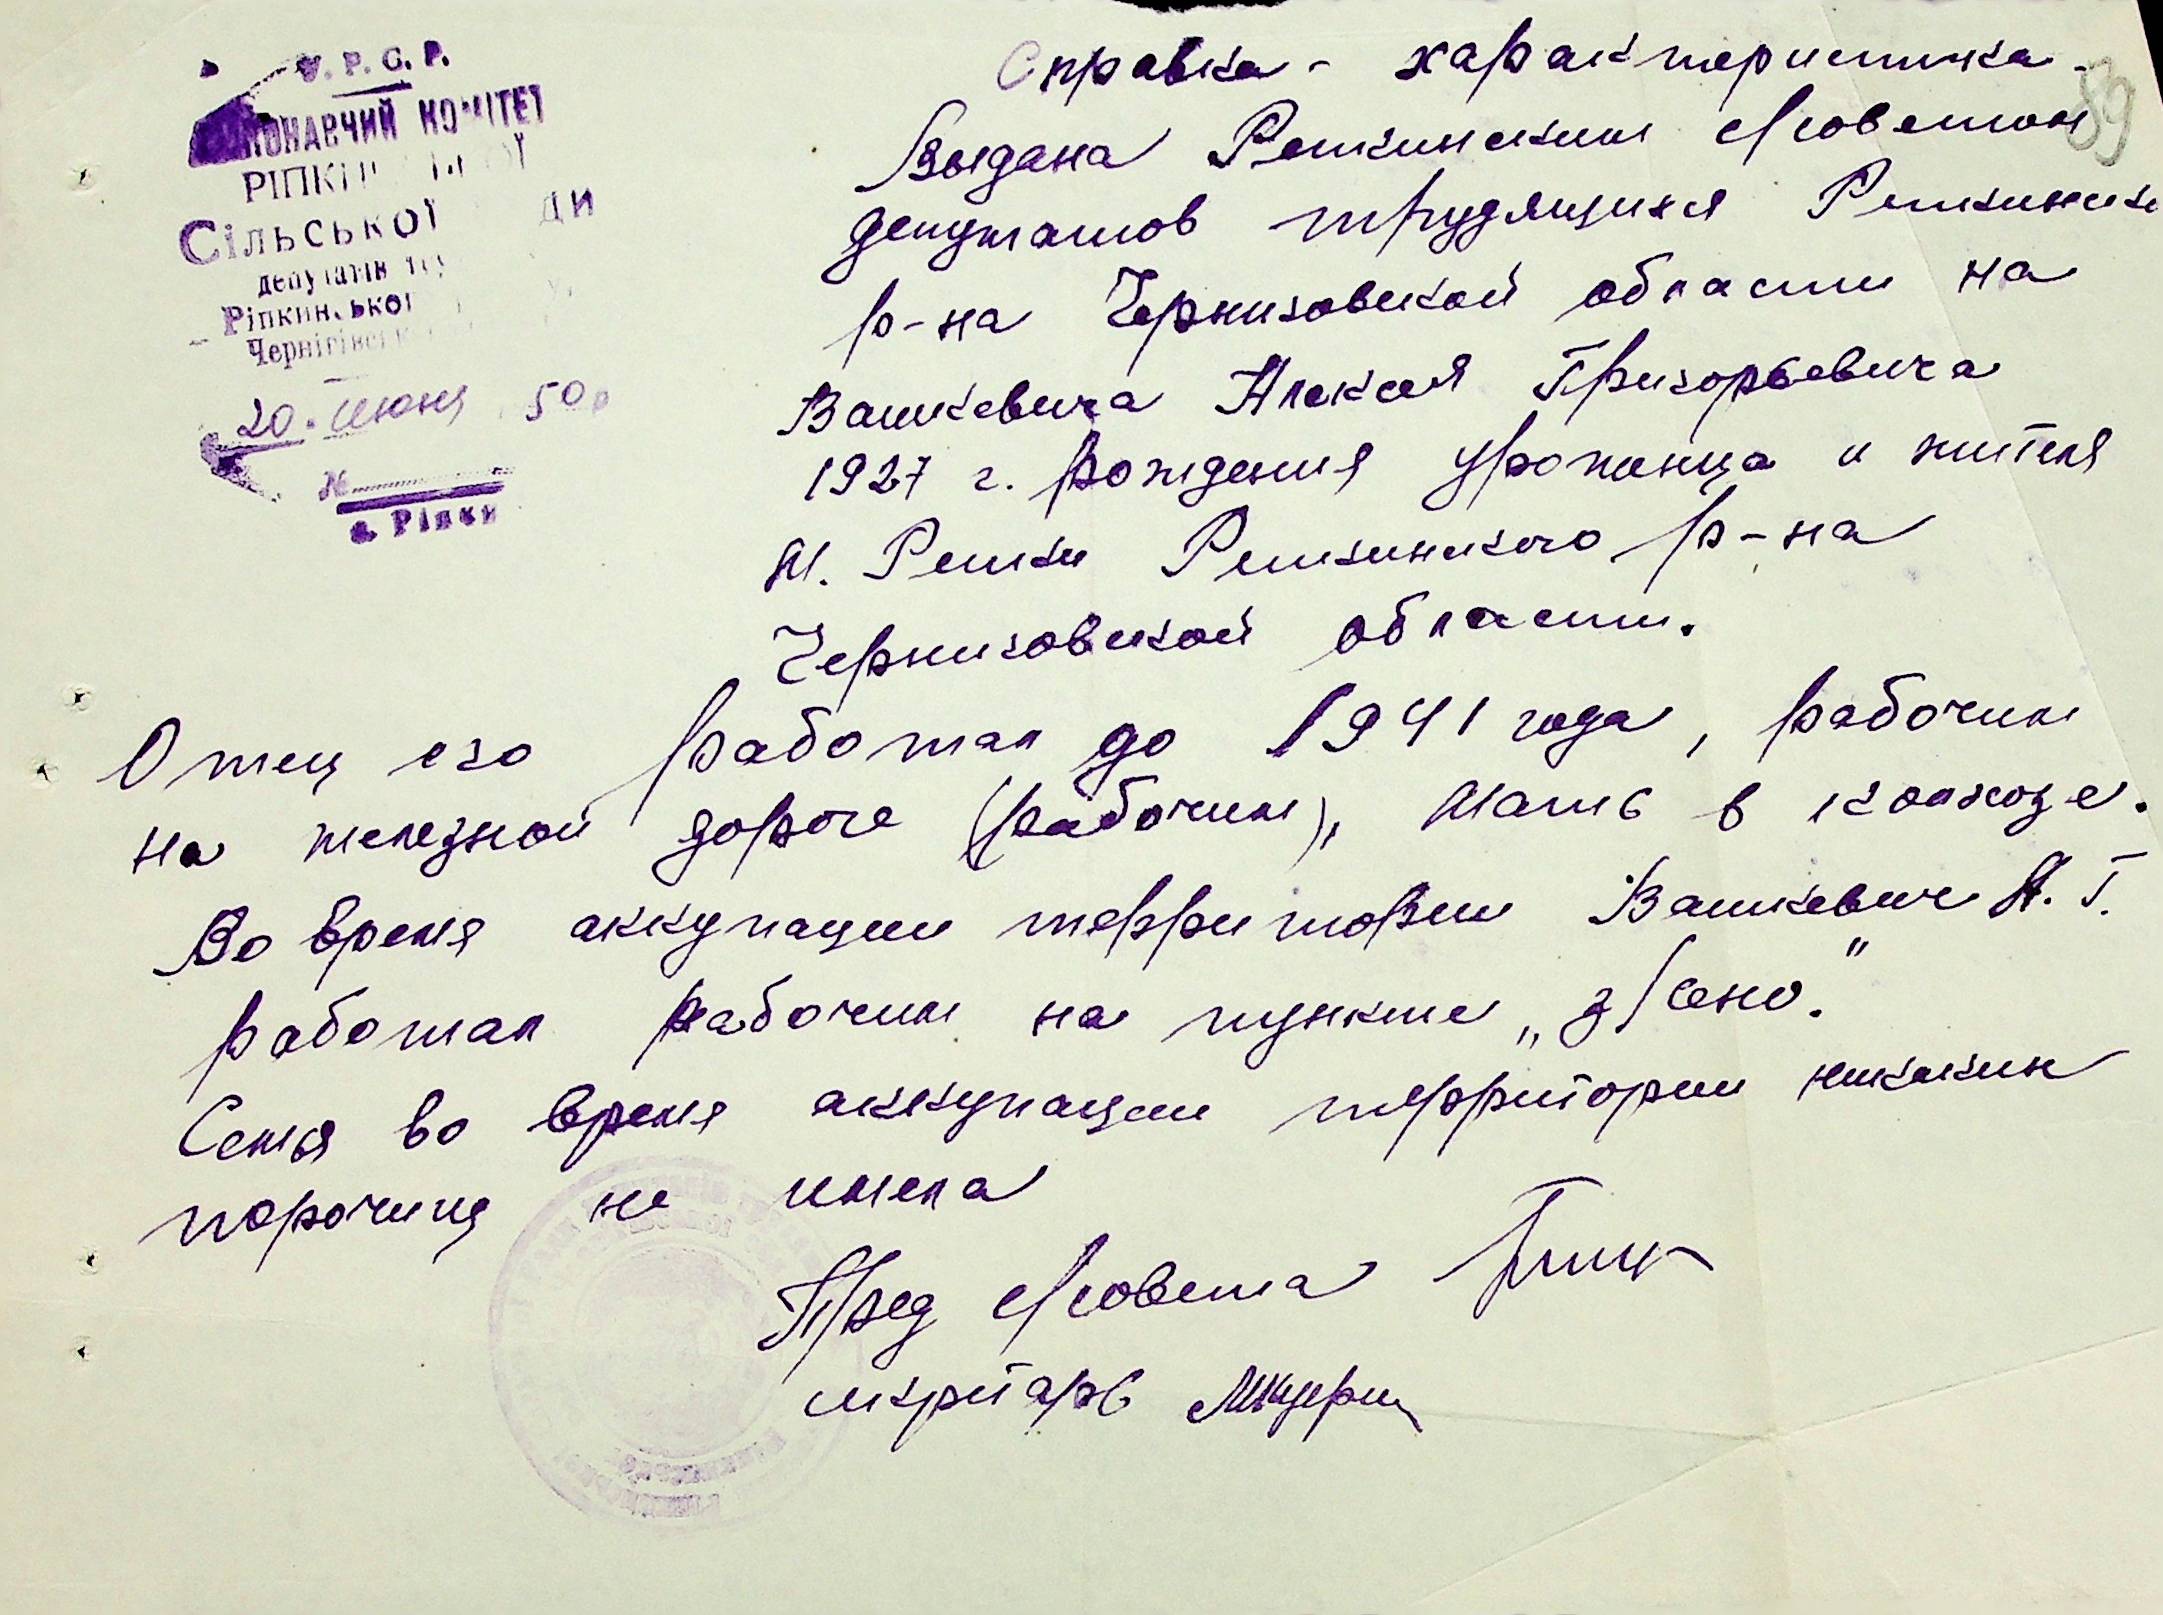 У.Р.С.Р.
КОНАВЧИЙ КОМІТЕТ
РІПКИ
СІЛЬСЬКОЇ ДИ
депутатів
Ріпкинської
Чернігівськ
20. июня 50
№
с. Ріпки
89
Справка - характеристика.
Выдана Репкинским с/советом
депутатов трудящихся Репкинск
р-на Черниговской области на
Вашкевича Алексея Григорьевича
1927 г. рождения уроженца и жителя
м. Репки Репкинского р-на
Черниговской области.
Отец его работал до 1941 года, рабочим
на железной дороге (рабочим), мать в колхозе.
Во время аккупации территории Вашкевич А.Г.
работал рабочим на пункте „з/сено."
Семья во время аккупации территории никаких
порочищ не имела
Пред с/совета